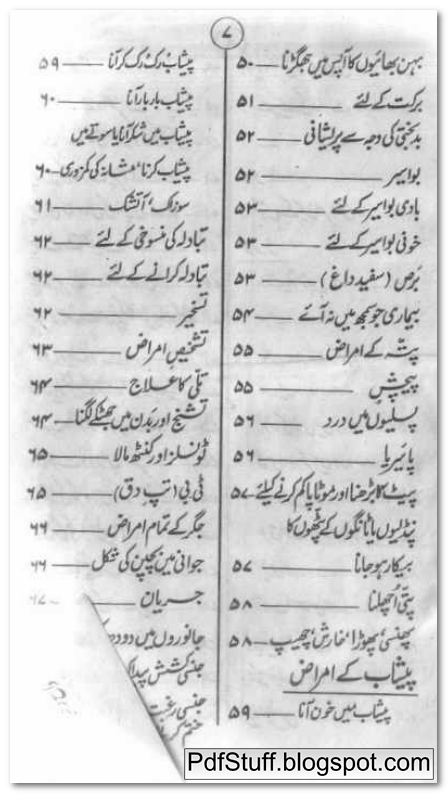 ۷
بہن بھائیوں کا آپس میں جھگڑنا ۵۰
برکت کے لئے ۵۱
بدبختی کی وجہ سے پریشانی ۵۲
بواسیر ۵۲
بادی بواسیر کے لئے ۵۳
خونی بواسیر کے لئے ۵۳
برص (سفید داغ) ۵۳
بیماری جو سمجھ میں نہ آئے ۵۴
پتہ کے امراض ۵۵
پیچش ۵۵
پسلیوں میں درد ۵۶
پائیریا ۵۶
پیٹ کا بڑھنا اور موٹاپا کم کرنے کیلئے ۵۷
پنڈلیوں یا ٹانگوں کے پٹھوں کا
بیکار ہو جانا ۵۷
پتی اچھلنا ۵۸
پھنسی، پھوڑا، خارش، چھیپ ۵۸
پیشاب کے امراض
پیشاب میں خون آنا ۵۹
پیشاب رک رک کر آنا ۵۹
پیشاب بار بار آنا ۶۰
پیشاب میں شکر آنا یا سوتے میں
پیشاب کرنا، مثانہ کی کمزوری ۶۰
سوزاک، آتشک ۶۱
تبادلہ کی منسوخی کے لئے ۶۲
تبادلہ کرانے کے لئے ۶۲
تسخیر ۶۲
تشخیص امراض ۶۳
تلی کا علاج ۶۴
تشنج اور بدن میں جھٹکے لگنا ۶۴
ٹونسلز اور کنٹھ مالا ۶۵
ٹی بی (تپ دق) ۶۵
جگر کے تمام امراض ۶۶
جوانی میں بچپن کی شکل ۶۶
جریان ۶۷
جانوروں میں دودھ
جنسی کشش پیدا
جنسی رغبت
ختم کر
PdfStuff.blogspot.com